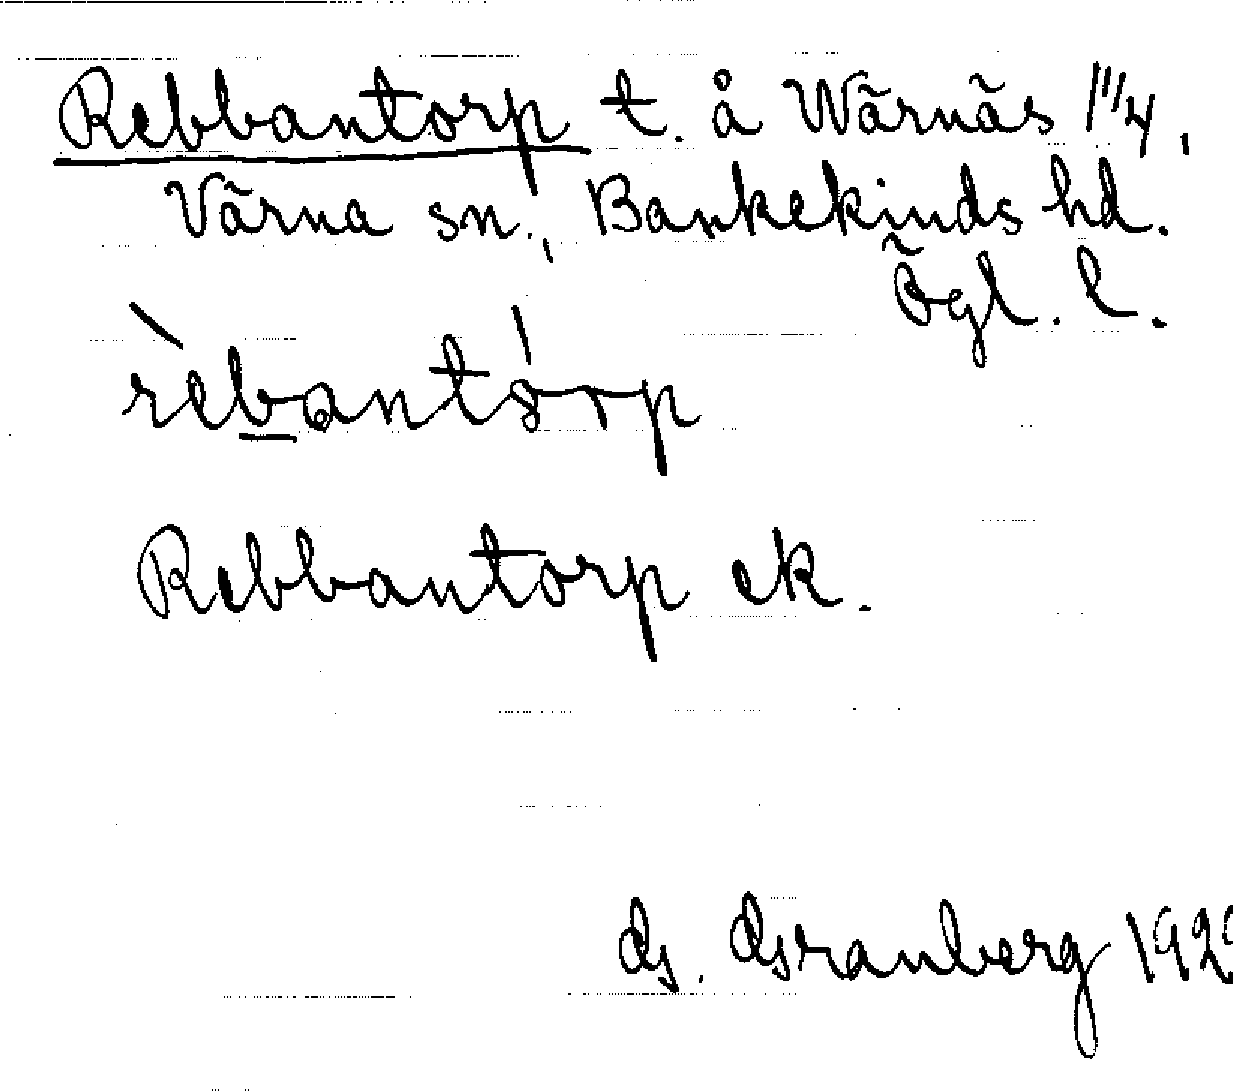 Rebbantorp t. å Wärnäs 1 1/4,
Värna sn., Bankekinds hd.
Ögl. l.
rèbantórp
Rebbantorp ek.
G. Granberg 1929